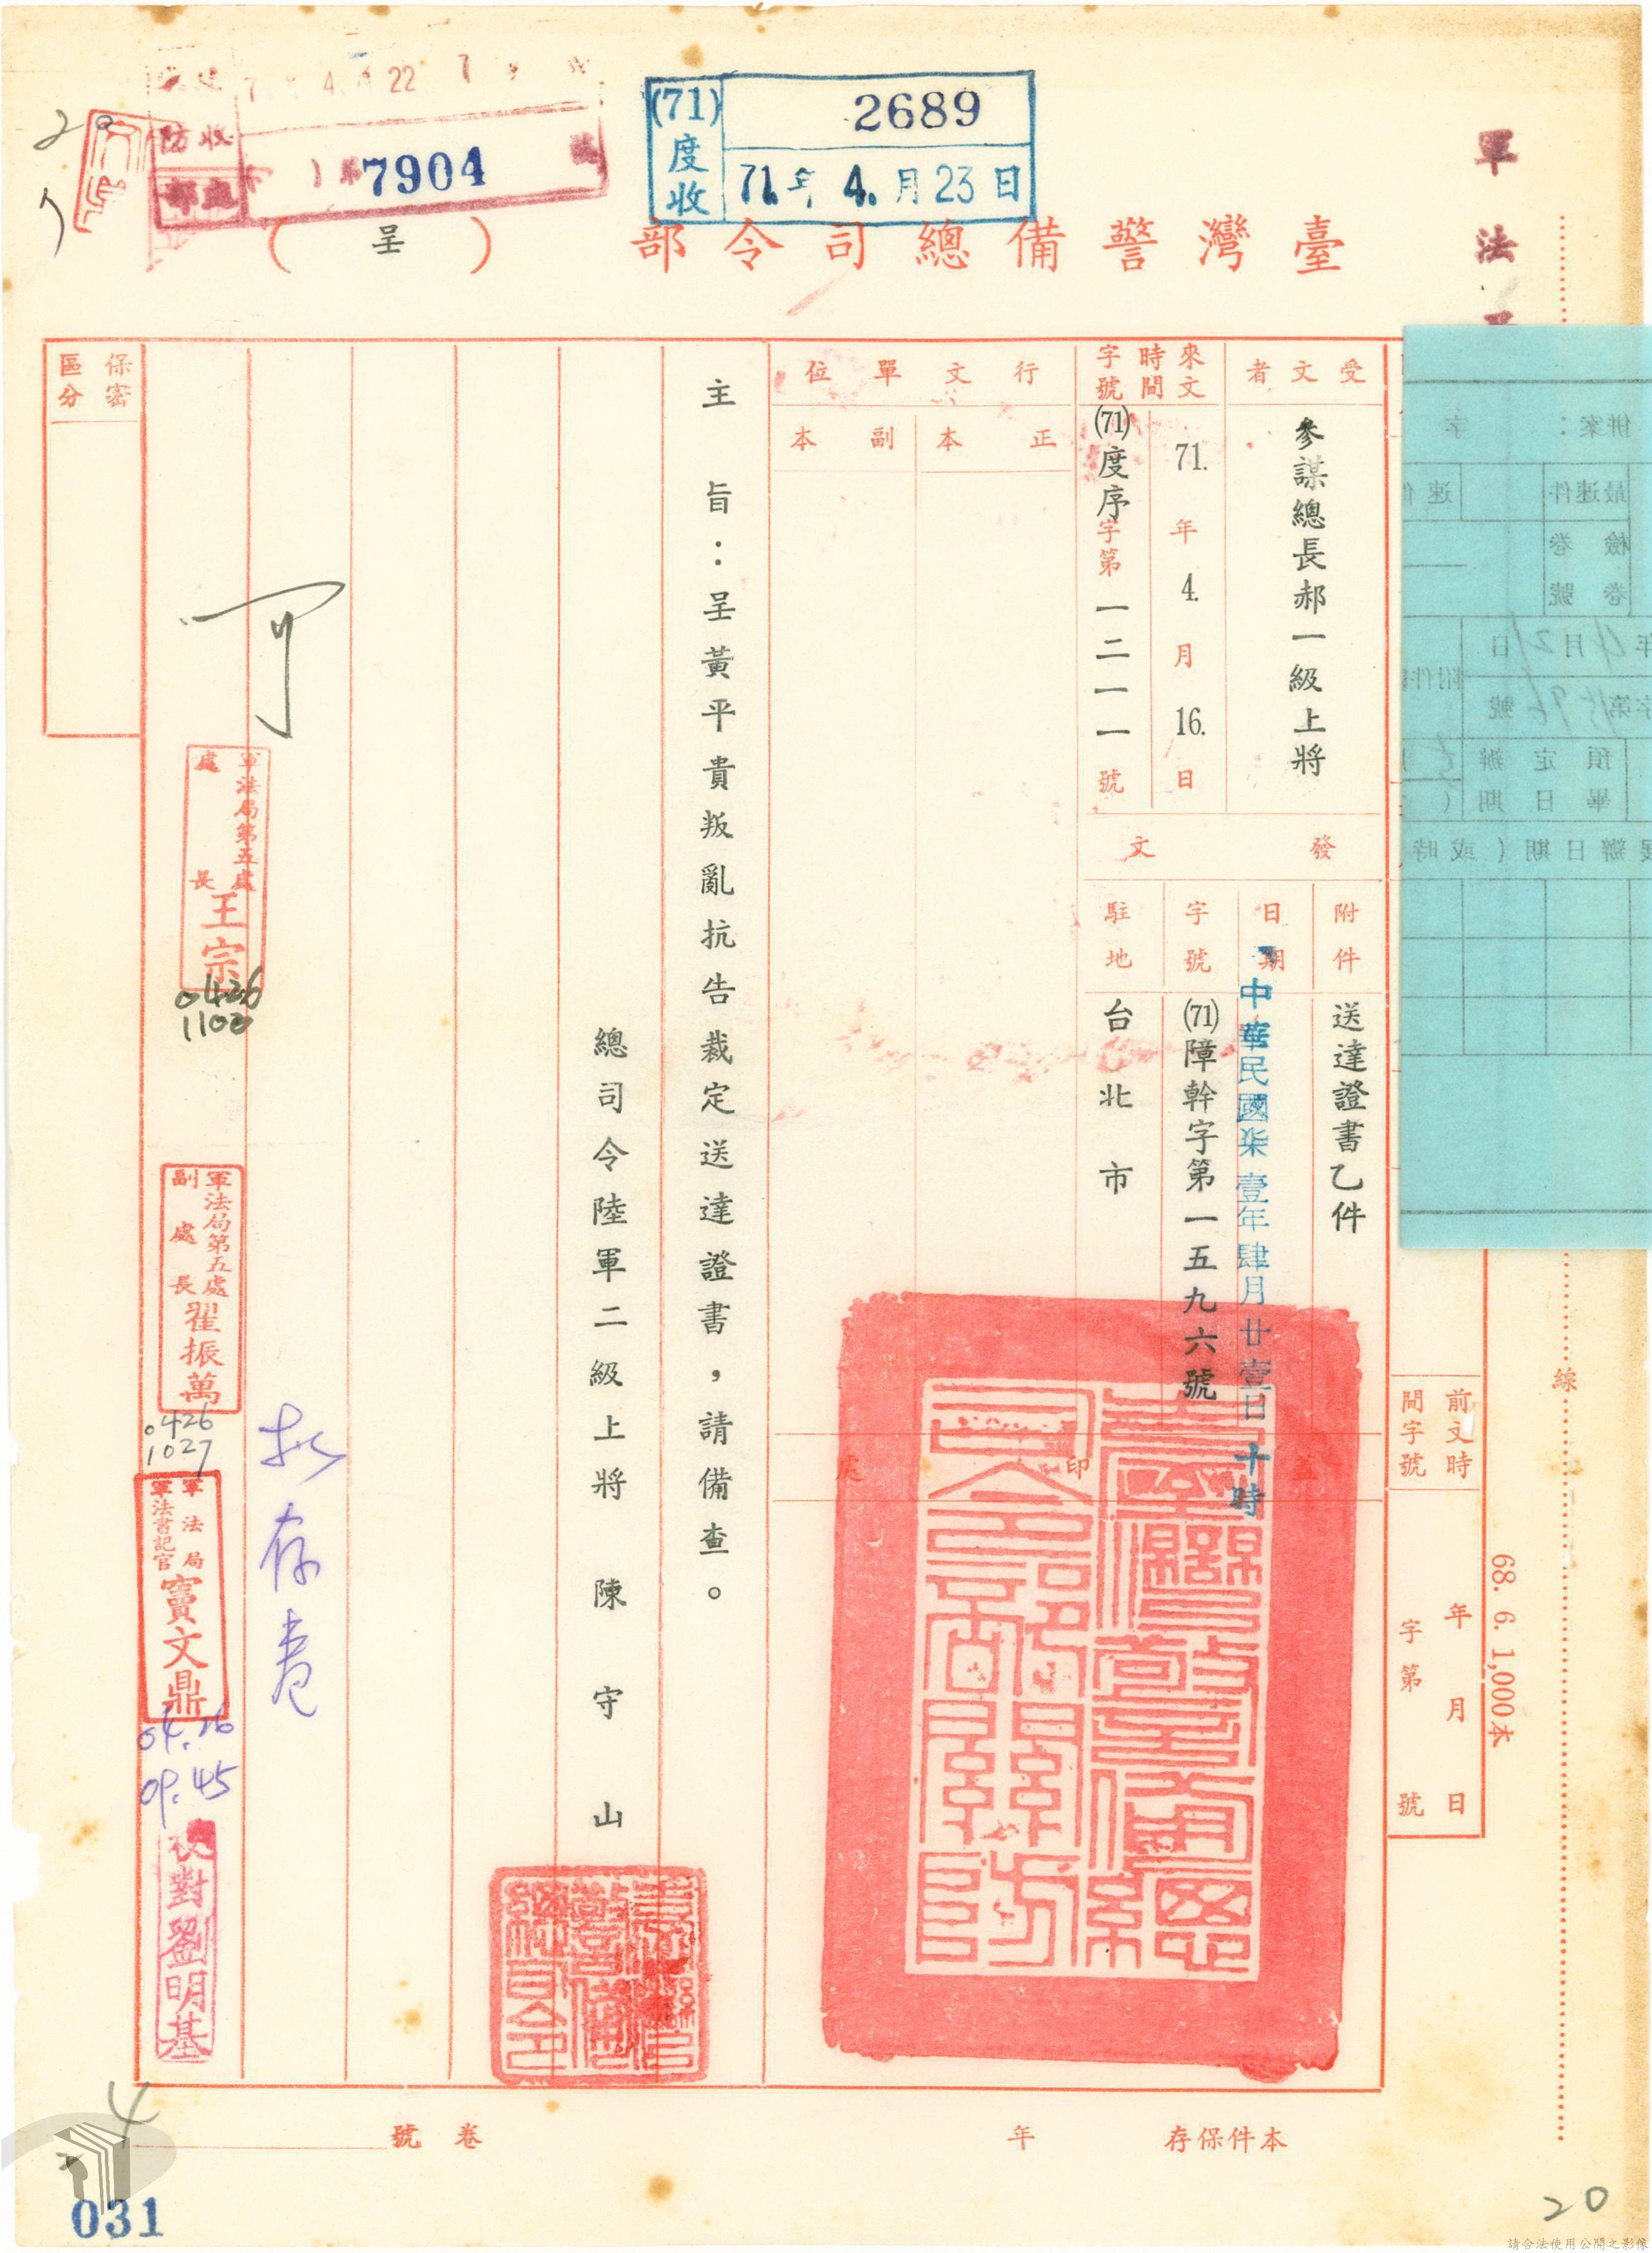 軍法
(71)度收
2689
71.年4.月23日
收防
部處
7904
4 22
臺灣警備總司令部（呈）
受文者
參謀總長郝一級上將
來文時間
71.年4.月16.日
字號
(71)度序字第一二一一號
行文單位
正本
副本
發文
附件
送達證書乙件
日期
中華民國柒壹年肆月廿壹日十時
字號
(71)障幹字第一五九六號
駐地
台北市
蓋印處
臺灣警備總司令部關防
主旨：呈黃平貴叛亂抗告裁定送達證書，請備查。
總司令陸軍二級上將陳守山
保密區分
可
軍法局第五處處長王宗
0426
1100
軍法局第五處副處長翟振萬
0426
1027
擬存卷
軍法局軍法書記官竇文鼎
04.26
09.45
校對劉明基
前文時間字號
年月日
字第號
68.6.1,000本
線
併案：字
最速件
速件
檢卷
卷號
年4月21日
字第1596號
附件
預定辦畢日期（
展辦日期（或時
本件保存年
卷號
4
031
20
請合法使用公開之影像